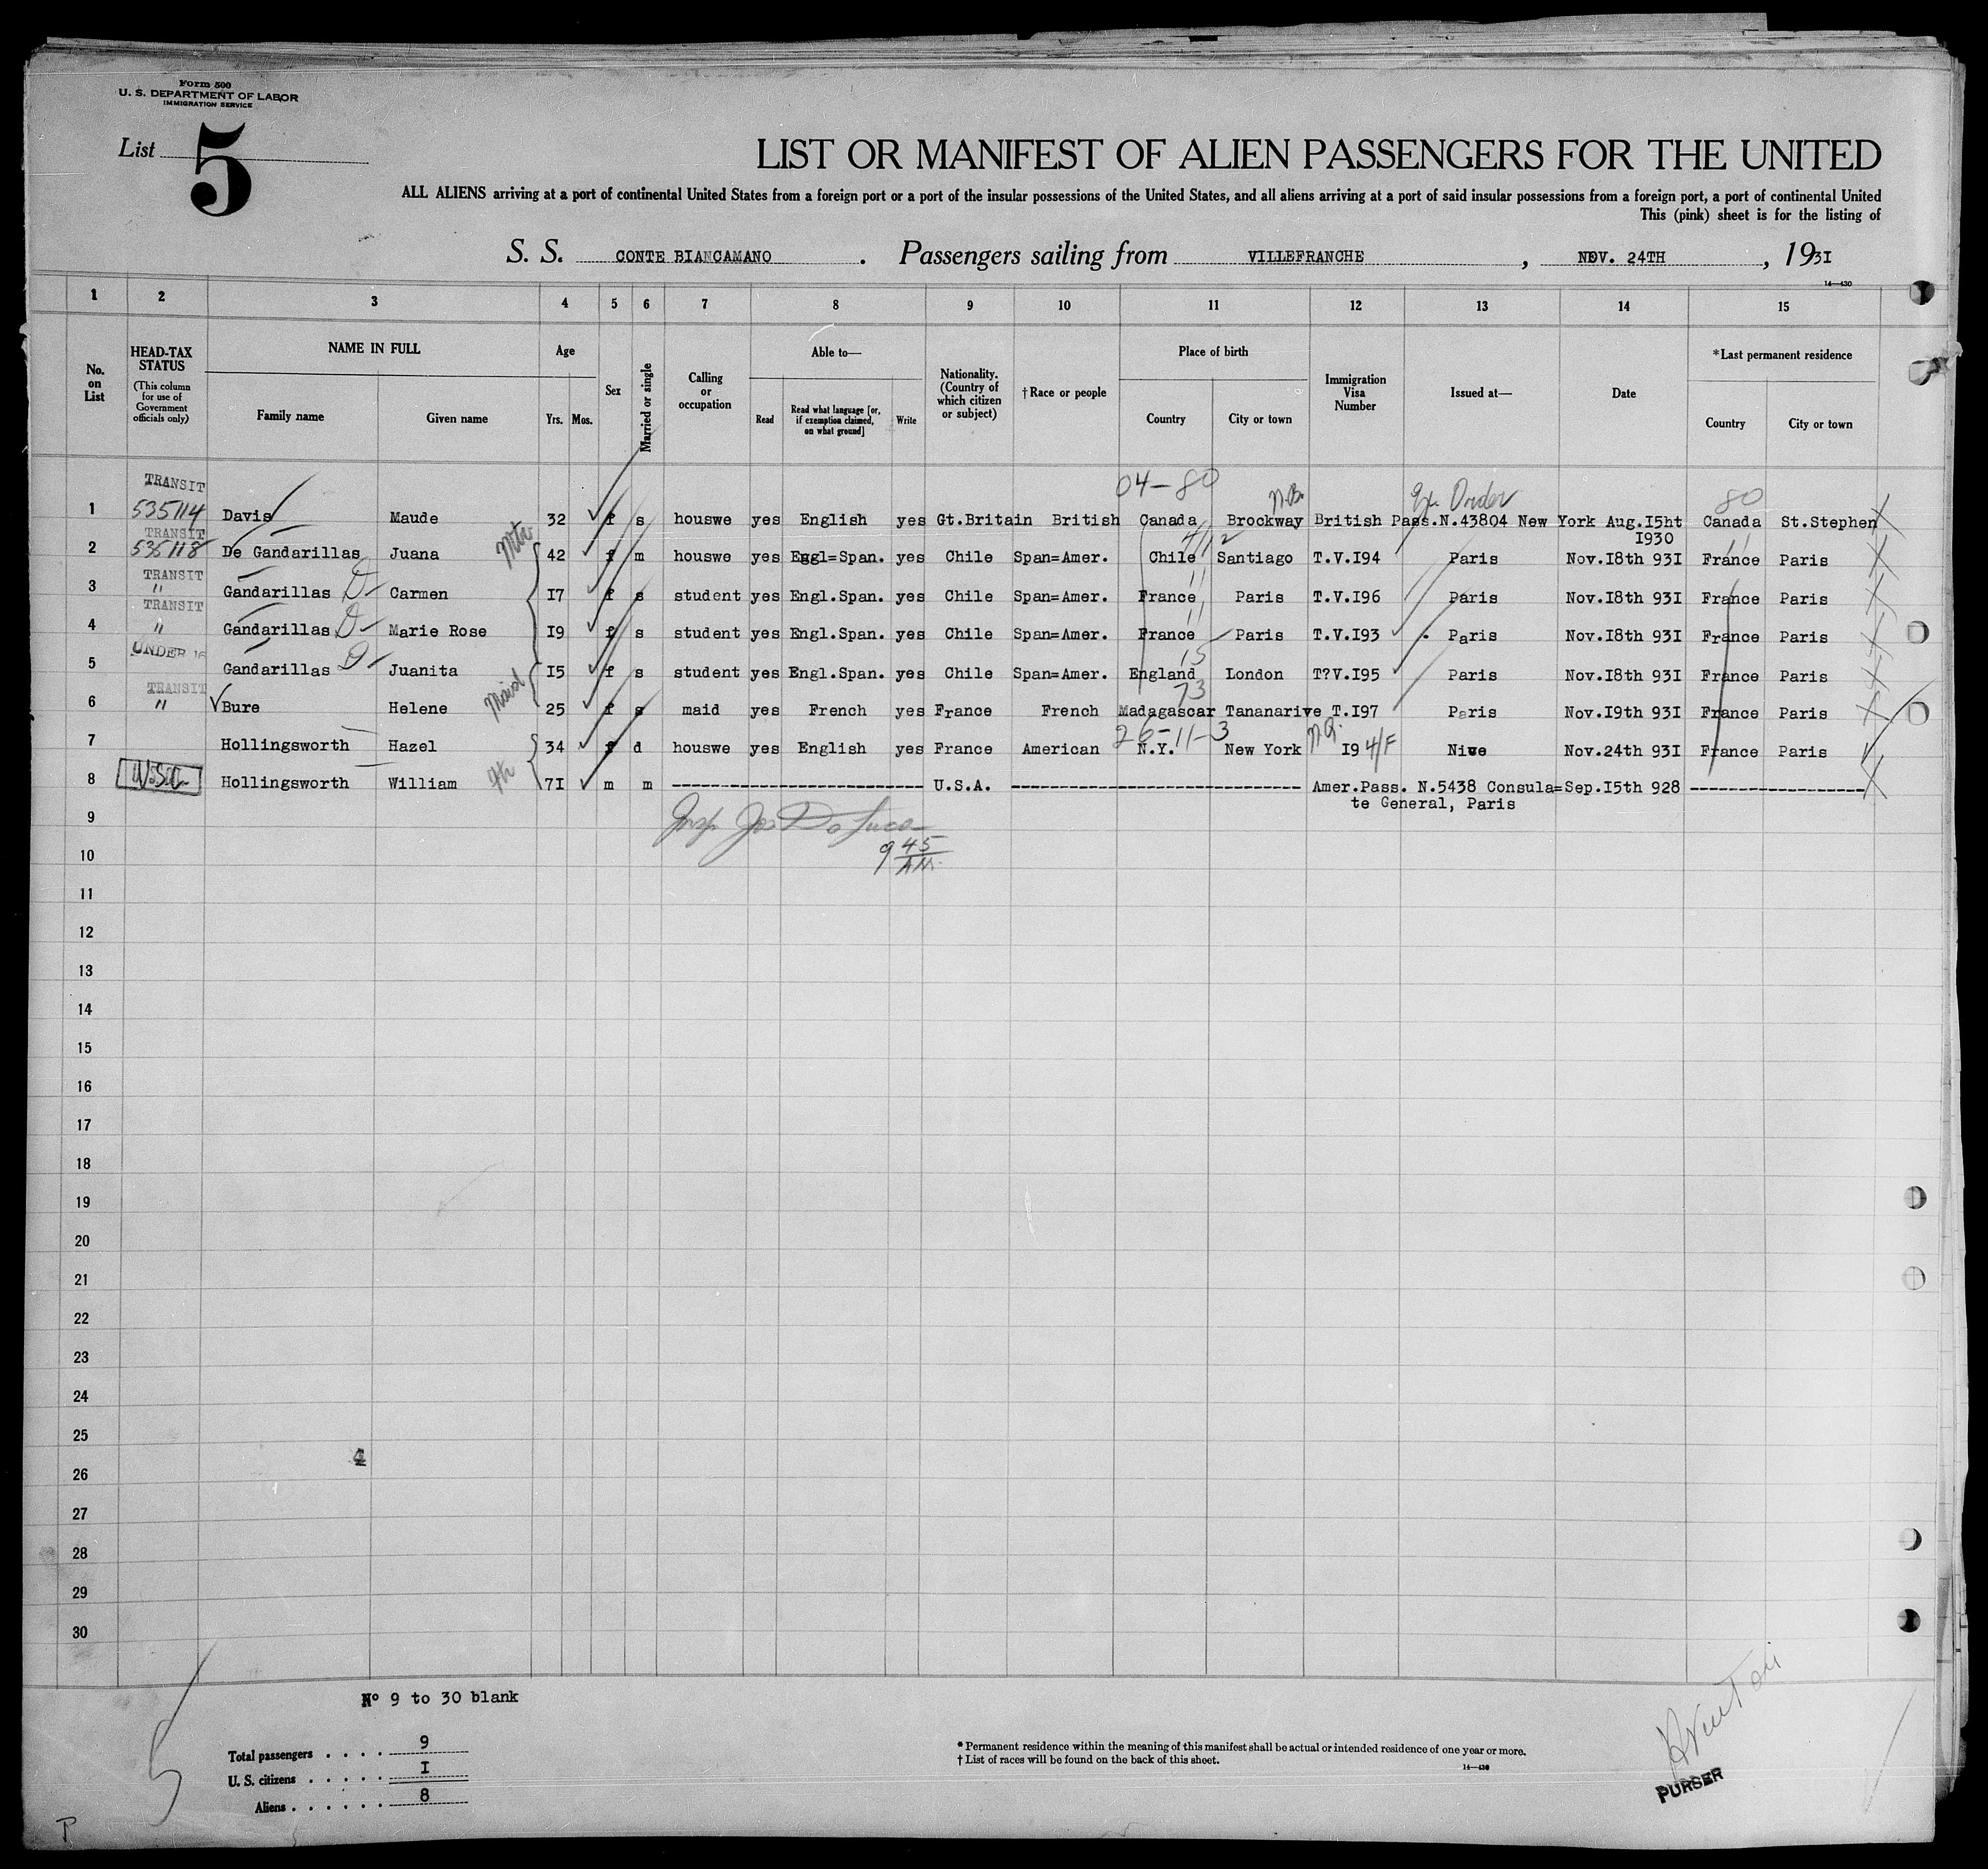 Form 500
U. S. DEPARTMENT OF LABOR
IMMIGRATION SERVICE
List 5
LIST OR MANIFEST OF ALIEN PASSENGERS FOR THE UNITED
ALL ALIENS arriving at a port of continental United States from a foreign port or a port of the insular possessions of the United States, and all aliens arriving at a port of said insular possessions from a foreign port, a port of continental United
This (pink) sheet is for the listing of
S. S. CONTE BIANCAMANO . Passengers sailing from VILLEFRANCHE , NOV. 24TH , 1931
14—430
1 2 3 4 5 6 7 8 9 10 11 12 13 14 15
No. on List
HEAD-TAX STATUS
(This column for use of Government officials only)
NAME IN FULL
Family name Given name
Age
Yrs. Mos.
Sex
Married or single
Calling or occupation
Able to—
Read
Read what language [or, if exemption claimed, on what ground]
Write
Nationality. (Country of which citizen or subject)
†Race or people
Place of birth
Country City or town
Immigration Visa Number
Issued at—
Date
*Last permanent residence
Country City or town
04-80 N.B. Ex. Order 80
TRANSIT
1 535114 Davis Maude 32 f s houswe yes English yes Gt.Britain British Canada Brockway British Pass.N.43804 New York Aug.I5ht Canada St.Stephen
I930
TRANSIT
2 535118 De Gandarillas Juana 42 f m houswe yes Eggl=Span. yes Chile Span=Amer. Chile Santiago T.V.I94 Paris Nov.I8th 93I France Paris
TRANSIT
3 " Gandarillas D- Carmen I7 f s student yes Engl.Span. yes Chile Span=Amer. France Paris T.V.I96 Paris Nov.I8th 93I France Paris
TRANSIT
4 " Gandarillas D- Marie Rose I9 f s student yes Engl.Span. yes Chile Span=Amer. France Paris T.V.I93 Paris Nov.I8th 93I France Paris
UNDER 16 15
5 Gandarillas D- Juanita I5 f s student yes Engl.Span. yes Chile Span=Amer. England London T?V.I95 Paris Nov.I8th 93I France Paris
TRANSIT Maid 73
6 " Bure Helene 25 f s maid yes French yes France French Madagascar Tananarive T.I97 Paris Nov.I9th 93I France Paris
26-11-3
7 Hollingsworth Hazel 34 f d houswe yes English yes France American N.Y. New York I9 4/F Nive Nov.24th 93I France Paris
8 Hollingsworth William 7I m m U.S.A. Amer.Pass. N.5438 Consula=Sep.I5th 928
te General, Paris
9
Insp Jos
10 9 45 AM.
11
12
13
14
15
16
17
18
19
20
21
22
23
24
25
4
26
27
28
29
30
Nº 9 to 30 blank
Total passengers . . . . 9
U. S. citizens . . . . . I
Aliens . . . . . . 8
* Permanent residence within the meaning of this manifest shall be actual or intended residence of one year or more.
† List of races will be found on the back of this sheet.
14—430
PURSER
P